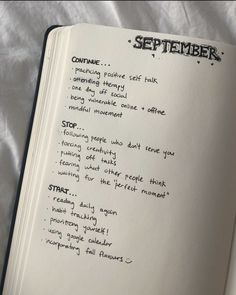 SEPTEMBER
CONTINUE...
· practicing positive self talk
· attending therapy
· one day off social
· being vulnerable online + offline
· mindful movement
STOP...
· following people who don't serve you
· forcing creativity
· putting off tasks
· fearing what other people think
· waiting for the "perfect moment"
START...
· reading daily again
· habit tracking
· prioritising yourself!
· using google calender
· incorporating fall flavours